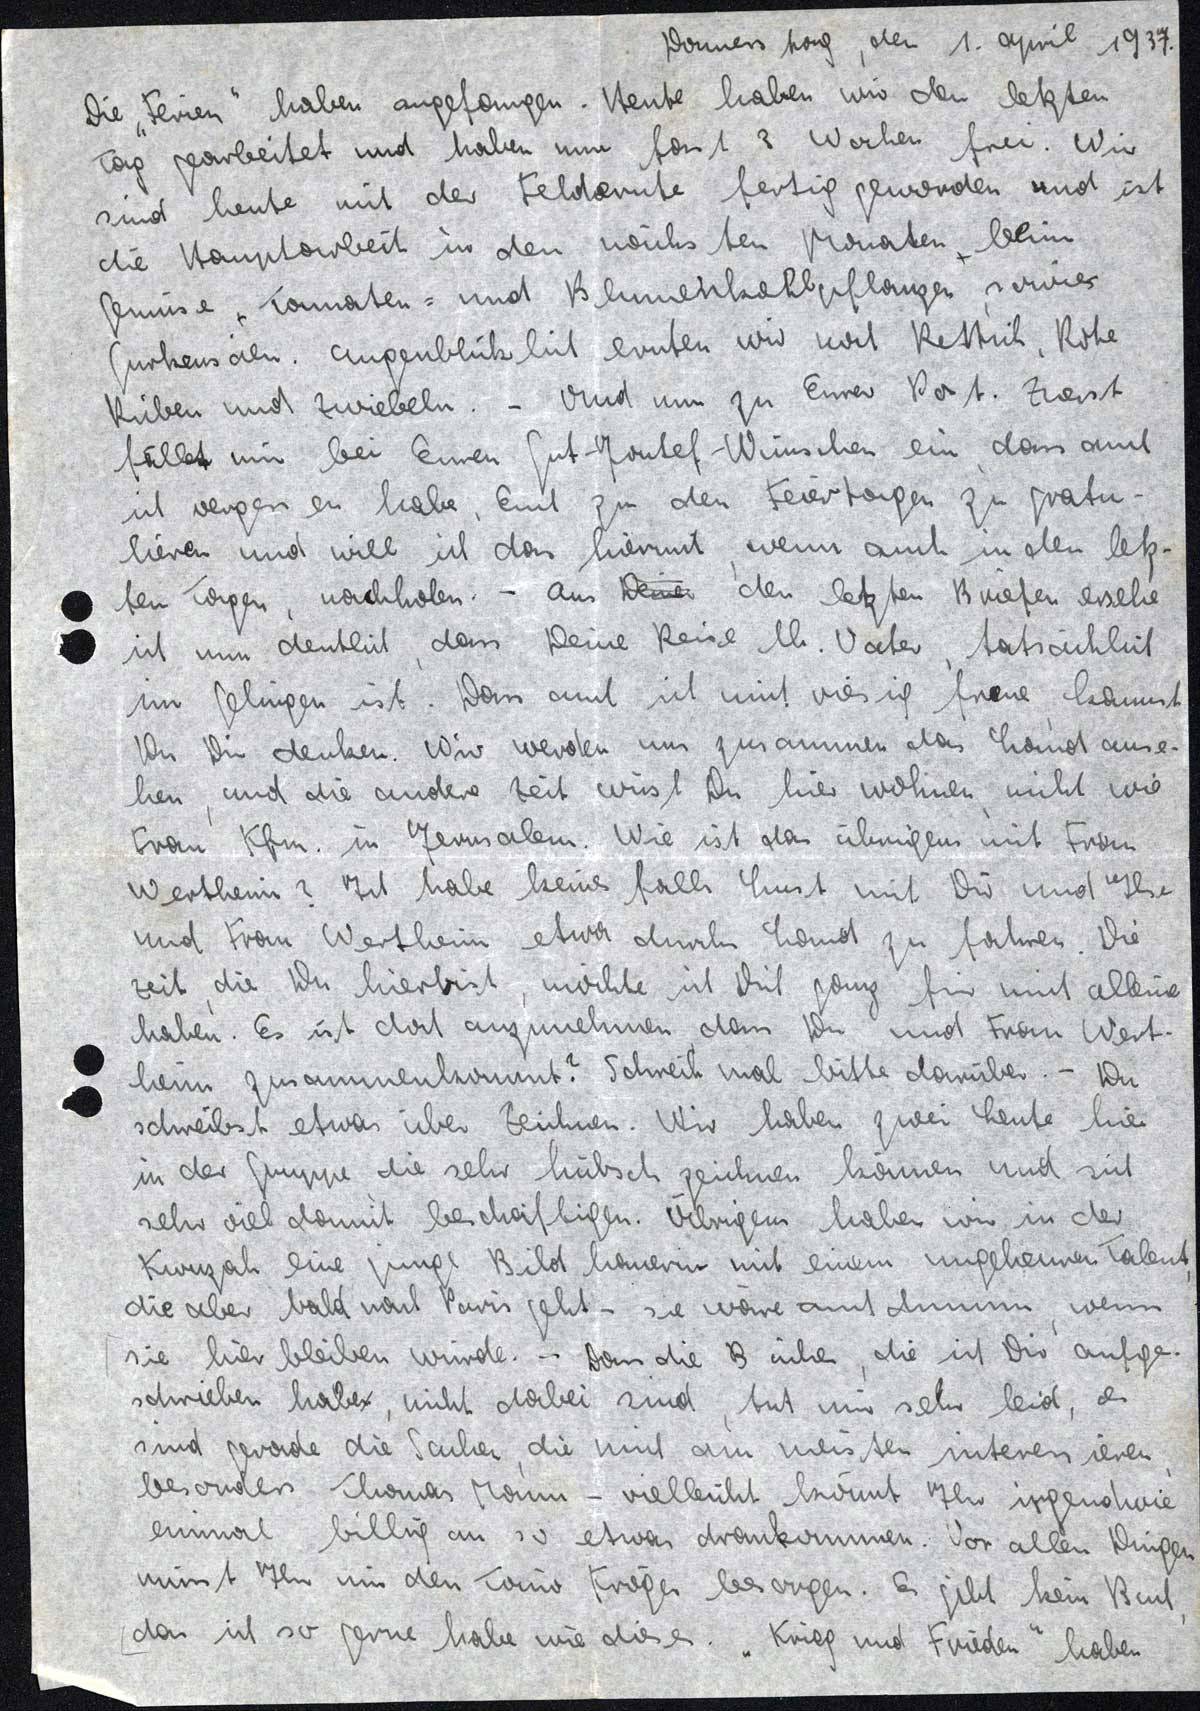 Donnerstag, den 1. April 1937.
Die „Ferien“ haben angefangen. Heute haben wir den letzten
Tag gearbeitet und haben nun fast 3 Wochen frei. Wir
sind heute mit der Feldernte fertig geworden und ist
die Hauptarbeit in den nächsten Monaten, beim
Gemüse, Tomaten= und Blumenkohlpflanzen, sowie
Gurkensäen. Augenblicklich ernten wir noch Rettich, Rote
Rüben und Zwiebeln. - Und nun zu Eurer Post. Zuerst
fällt mir bei Euren Gut-Jontef-Wünschen ein, dass auch
ich vergessen habe, Euch zu den Feiertagen zu gratu-
lieren und will ich das hiermit, wenn auch in den letz-
ten Tagen, nachholen. - Aus Deiner den letzten Briefen ersehe
ich nun deutlich, dass Deine Reise lb. Vater, tatsächlich
im Gelingen ist. Dass auch ich mich riesig freue, kannst
Du Dir denken. Wir werden uns zusammen das Land anse-
hen, und die andere Zeit wirst Du hier wohnen, nicht wie
Frau Kfm. in Jerusalem. Wie ist das übrigens mit Frau
Wertheim? Ich habe keinesfalls Lust mit Dir und Ilse
und Frau Wertheim etwa durchs Land zu fahren. Die
Zeit, die Du hier bist, möchte ich Dich ganz für mich alleine
haben. Es ist doch anzunehmen, dass Du und Frau Wert-
heim zusammenkommt? Schreib mal bitte darüber. - Du
schreibst etwas über Zeichnen. Wir haben zwei Leute hier
in der Gruppe die sehr hübsch zeichnen können und sich
sehr viel damit beschäftigen. Übrigens haben wir in der
Kwuzah eine junge Bildhauerin mit einem ungeheuren Talent,
die aber bald nach Paris geht - sie wäre auch dumm, wenn
sie hier bleiben würde. - Dass die Bücher, die ich Dir aufge-
schrieben habe, nicht dabei sind, tut mir sehr leid, es
sind gerade die Sachen, die mich am meisten interessieren,
besonders Thomas Mann - vielleicht könnt Ihr irgendwie
einmal billig an so etwas drankommen. Vor allen Dingen
müsst Ihr mir den Tonio Kröger besorgen. Es gibt kein Buch,
das ich so gerne habe wie dieses. „Krieg und Frieden“ haben